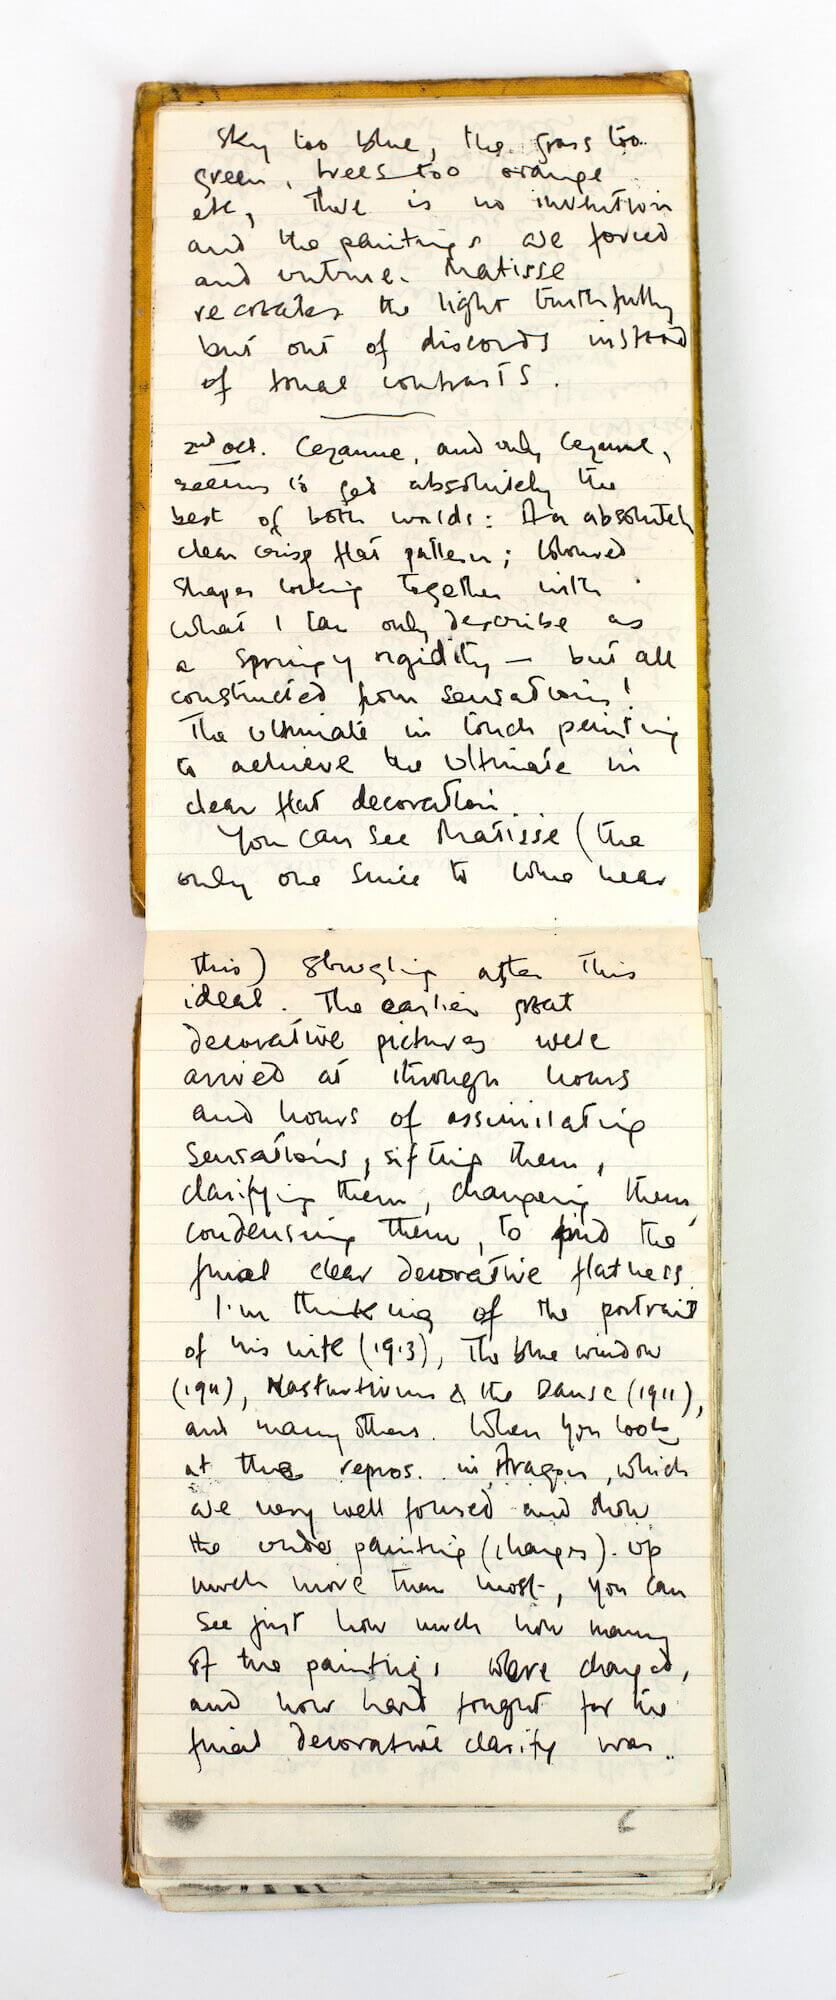 sky too blue, the grass too
green, trees too orange
etc, there is no invention
and the paintings are forced
and untrue. Matisse
recreates the light truthfully
but out of discords instead
of tonal contrasts.
2nd Oct. Cezanne, and only Cezanne,
seems to get absolutely the
best of both worlds: An absolutely
clear crisp flat pattern; coloured
shapes locking together with
what I can only describe as
a springy rigidity – but all
constructed from sensations!
The ultimate in touch painting
to achieve the ultimate in
clear flat decoration.
You can see Matisse (the
only one since to come near
this) struggling after this
ideal. The earlier great
decorative pictures were
arrived at through hours
and hours of assimilating
sensations, sifting them,
clarifying them, changeing them,
condensing them, to find the
final clear decorative flatness.
I'm thinking of the portrait
of his wife (1913), The blue window
(1911), Nasturtiums & the Danse (1911),
and many others. When you look
at the repros. in Aragon, which
are very well focused and show
the under painting (changes) up
much more than most, you can
see just how much how many
of the paintings were changed,
and how hard fought for the
final decorative clarity was..